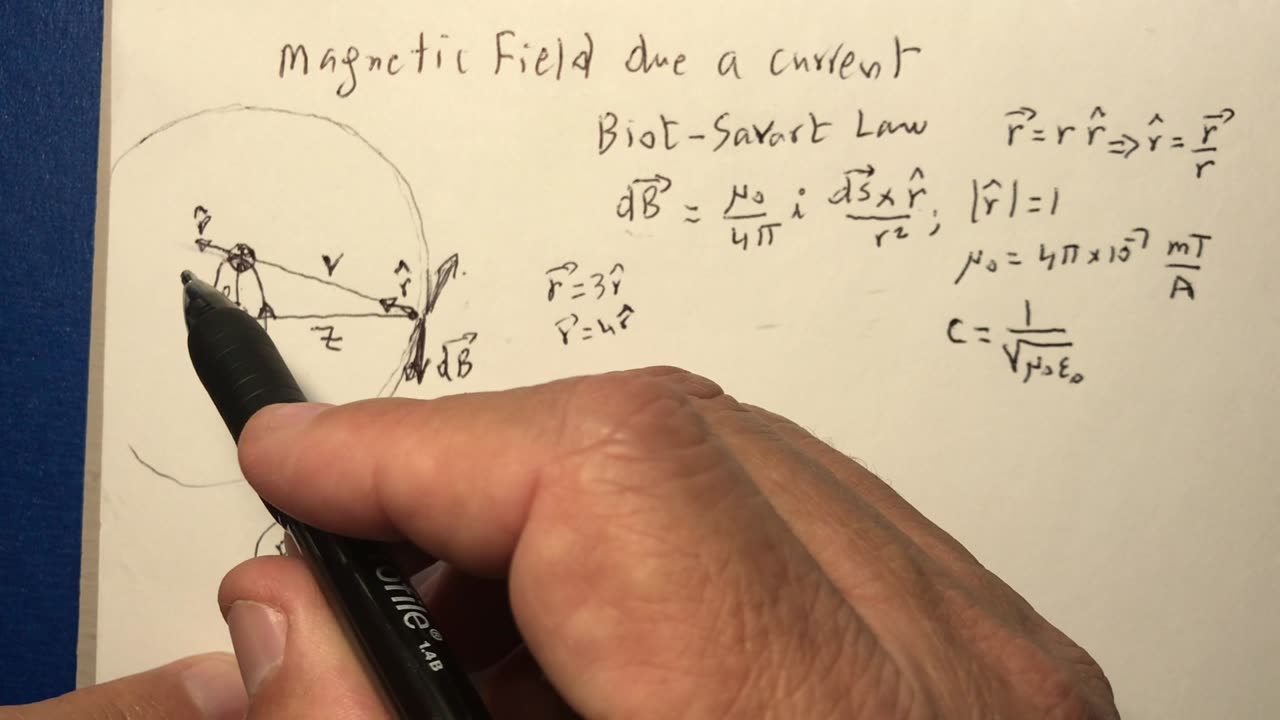 Magnetic Field due a current
Biot-Savart Law
$\vec{r} = r\,\hat{r} \Rightarrow \hat{r} = \frac{\vec{r}}{r}$
$\vec{dB} = \frac{\mu_0}{4\pi} i \frac{\vec{ds} \times \hat{r}}{r^2}$; $|\hat{r}| = 1$
$\mu_0 = 4\pi \times 10^{-7} \frac{mT}{A}$
$\hat{r}$
r
$\hat{r}$
z
$\vec{dB}$
$\vec{r} = 3\hat{r}$
$\vec{r} = 4\hat{r}$
$c = \frac{1}{\sqrt{\mu_0 \varepsilon_0}}$
1.4B